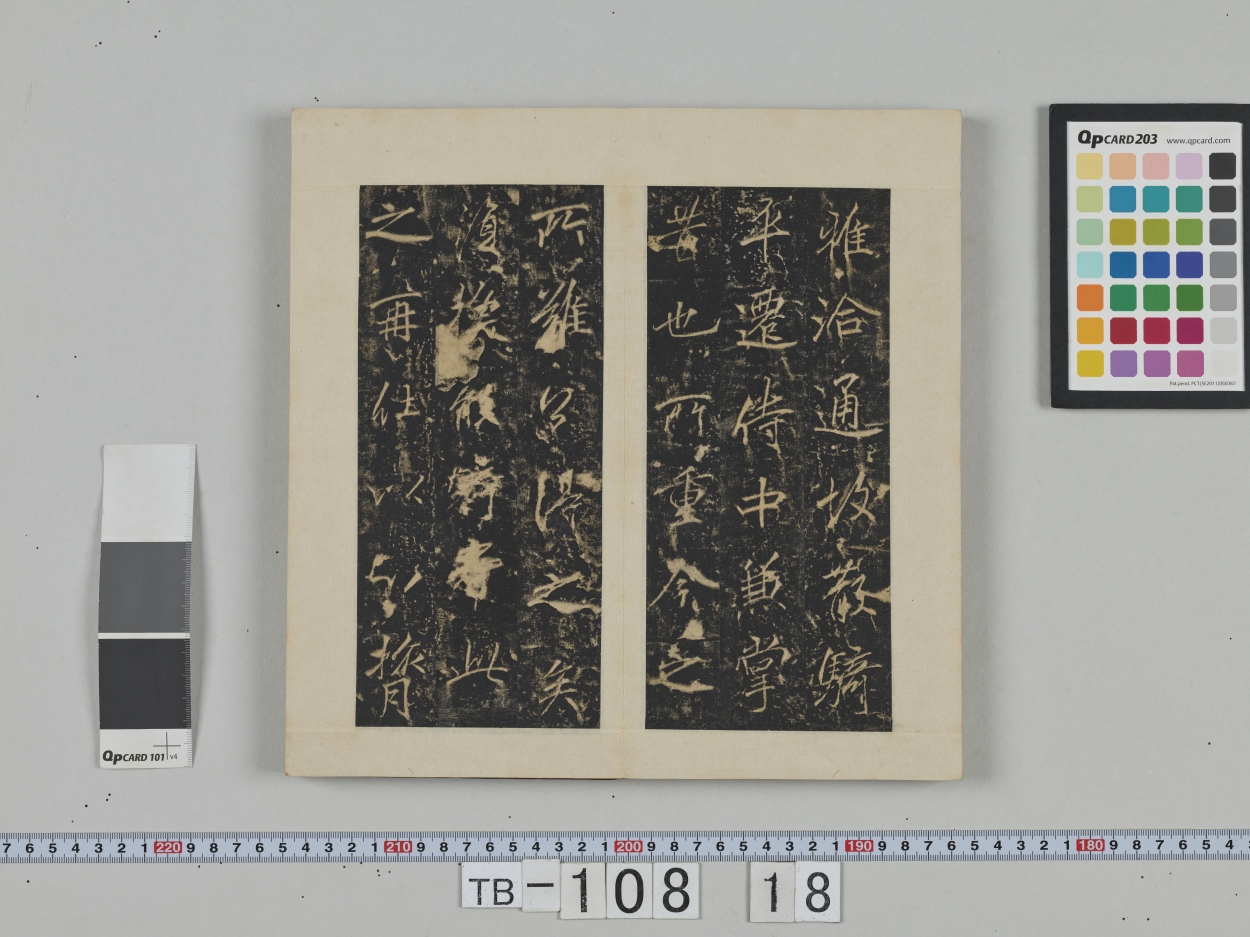 雅洽通故散騎
平遷侍中兼掌
昔也所重今之
所難 之矣
須 能 此
之再 以
QPCARD 203
www.qpcard.com
Pat.pend. PCT(SE2011)050367
QPCARD 101 v4
7 6 5 4 3 2 1 220 9 8 7 6 5 4 3 2 1 210 9 8 7 6 5 4 3 2 1 200 9 8 7 6 5 4 3 2 1 190 9 8 7 6 5 4 3 2 1 180 9 8 7 6 5 4 3
TB-108 18